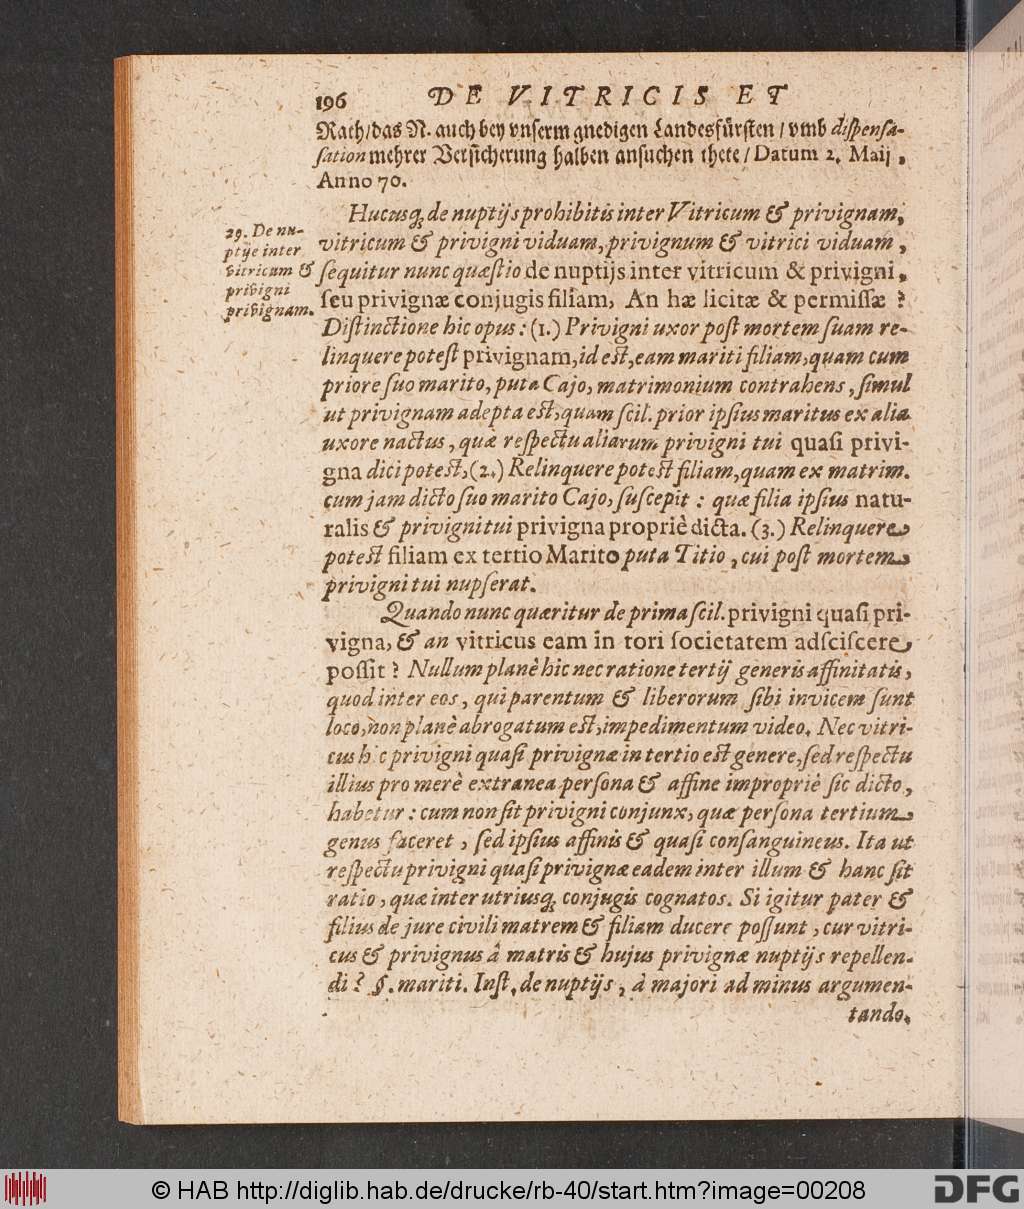 196 DE VITRICIS ET
Rath/das N. auch bey vnserm gnedigen Landesfürsten / vmb dispensa-
sation mehrer Versicherung halben ansuchen thete / Datum 2. Maij,
Anno 70.
Hucusq; de nuptijs prohibitis inter Vitricum & privignam,
29. De nu-
ptije inter
vitricum &
privigni
privignam.
vitricum & privigni viduam, privignum & vitrici viduam,
sequitur nunc quæstio de nuptijs inter vitricum & privigni,
seu privignæ conjugis filiam, An hæ licitæ & permissæ?
Distinctione hic opus: (1.) Privigni uxor post mortem suam re-
linquere potest privignam, id est, eam mariti filiam, quam cum
priore suo marito, puta Cajo, matrimonium contrahens, simul
ut privignam adepta est, quam scil. prior ipsius maritus ex alia
uxore nactus, quæ respectu aliarum privigni tui quasi privi-
gna dici potest, (2.) Relinquere potest filiam, quam ex matrim.
cum jam dicto suo marito Cajo, suscepit: quæ filia ipsius natu-
ralis & privigni tui privigna propriè dicta. (3.) Relinquere
potest filiam ex tertio Marito puta Titio, cui post mortem
privigni tui nupserat.
Quando nunc quæritur de prima scil. privigni quasi pri-
vigna, & an vitricus eam in tori societatem adsciscere
possit? Nullum planè hic nec ratione tertij generis affinitatis,
quod inter eos, qui parentum & liberorum sibi invicem sunt
loco, non planè abrogatum est, impedimentum video. Nec vitri-
cus hic privigni quasi privignæ in tertio est genere, sed respectu
illius pro merè extranea persona & affine impropriè sic dicto,
habetur: cum non sit privigni conjunx, quæ persona tertium
genus faceret, sed ipsius affinis & quasi consanguineus. Ita ut
respectu privigni quasi privignæ eadem inter illum & hanc sit
ratio, quæ inter utriusq; conjugis cognatos. Si igitur pater &
filius de jure civili matrem & filiam ducere possunt, cur vitri-
cus & privignus â matris & hujus privignæ nuptijs repellen-
di? §. mariti. Inst. de nuptijs, à majori ad minus argumen-
tando.
© HAB http://diglib.hab.de/drucke/rb-40/start.htm?image=00208
DFG